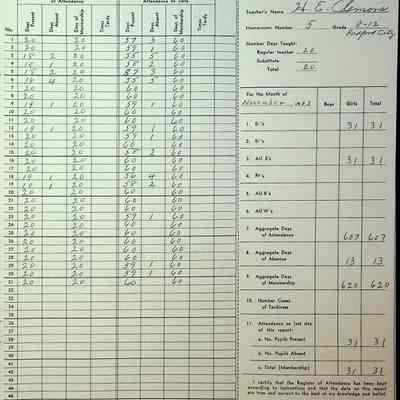 of Attendance
Attendance to Date
No.
Days Present
Days Absent
Days of Membership
Times Tardy
Days Present
Days Absent
Days of Membership
Times Tardy
1 20 20 57 3 60
2 20 20 59 1 60
3 18 2 20 55 5 60
4 19 1 20 58 2 60
5 18 2 20 57 3 60
6 16 4 20 55 5 60
7 20 20 60 60
8 20 20 60 60
9 19 1 20 59 1 60
10 20 20 60 60
11 20 20 60 60
12 19 1 20 59 1 60
13 20 20 59 1 60
14 20 20 60 60
15 20 20 58 2 60
16 20 20 60 60
17 20 20 60 60
18 19 1 20 56 4 60
19 19 1 20 58 2 60
20 20 20 60 60
21 20 20 60 60
22 20 20 60 60
23 20 20 59 1 60
24 20 20 60 60
25 20 20 60 60
26 20 20 60 60
27 20 20 60 60
28 20 20 60 60
29 20 20 59 1 60
30 20 20 59 1 60
31 20 20 60 60
32
33
34
35
36
37
38
39
40
41
42
43
44
45
Teacher's Name H. E. Clemons
Homeroom Number 5 Grade 8-12
Radford City
Number Days Taught:
Regular teacher 20
Substitute
Total 20
For the Month of
November, 19
Boys Girls Total
1. E's 31 31
2. R's
3. All E's 31 31
4. R's
5. All R's
6. All W's
7. Aggregate Days of Attendance 607 607
8. Aggregate Days of Absence 13 13
9. Aggregate Days of Membership 620 620
10. Number Cases of Tardiness
11. Attendance on last day of this report:
a. No. Pupils Present 31 31
b. No. Pupils Absent
c. Total (Membership) 31 31
I certify that the Register of Attendance has been kept
according to instructions and that the data on this report
are true and correct to the best of my knowledge and belief.